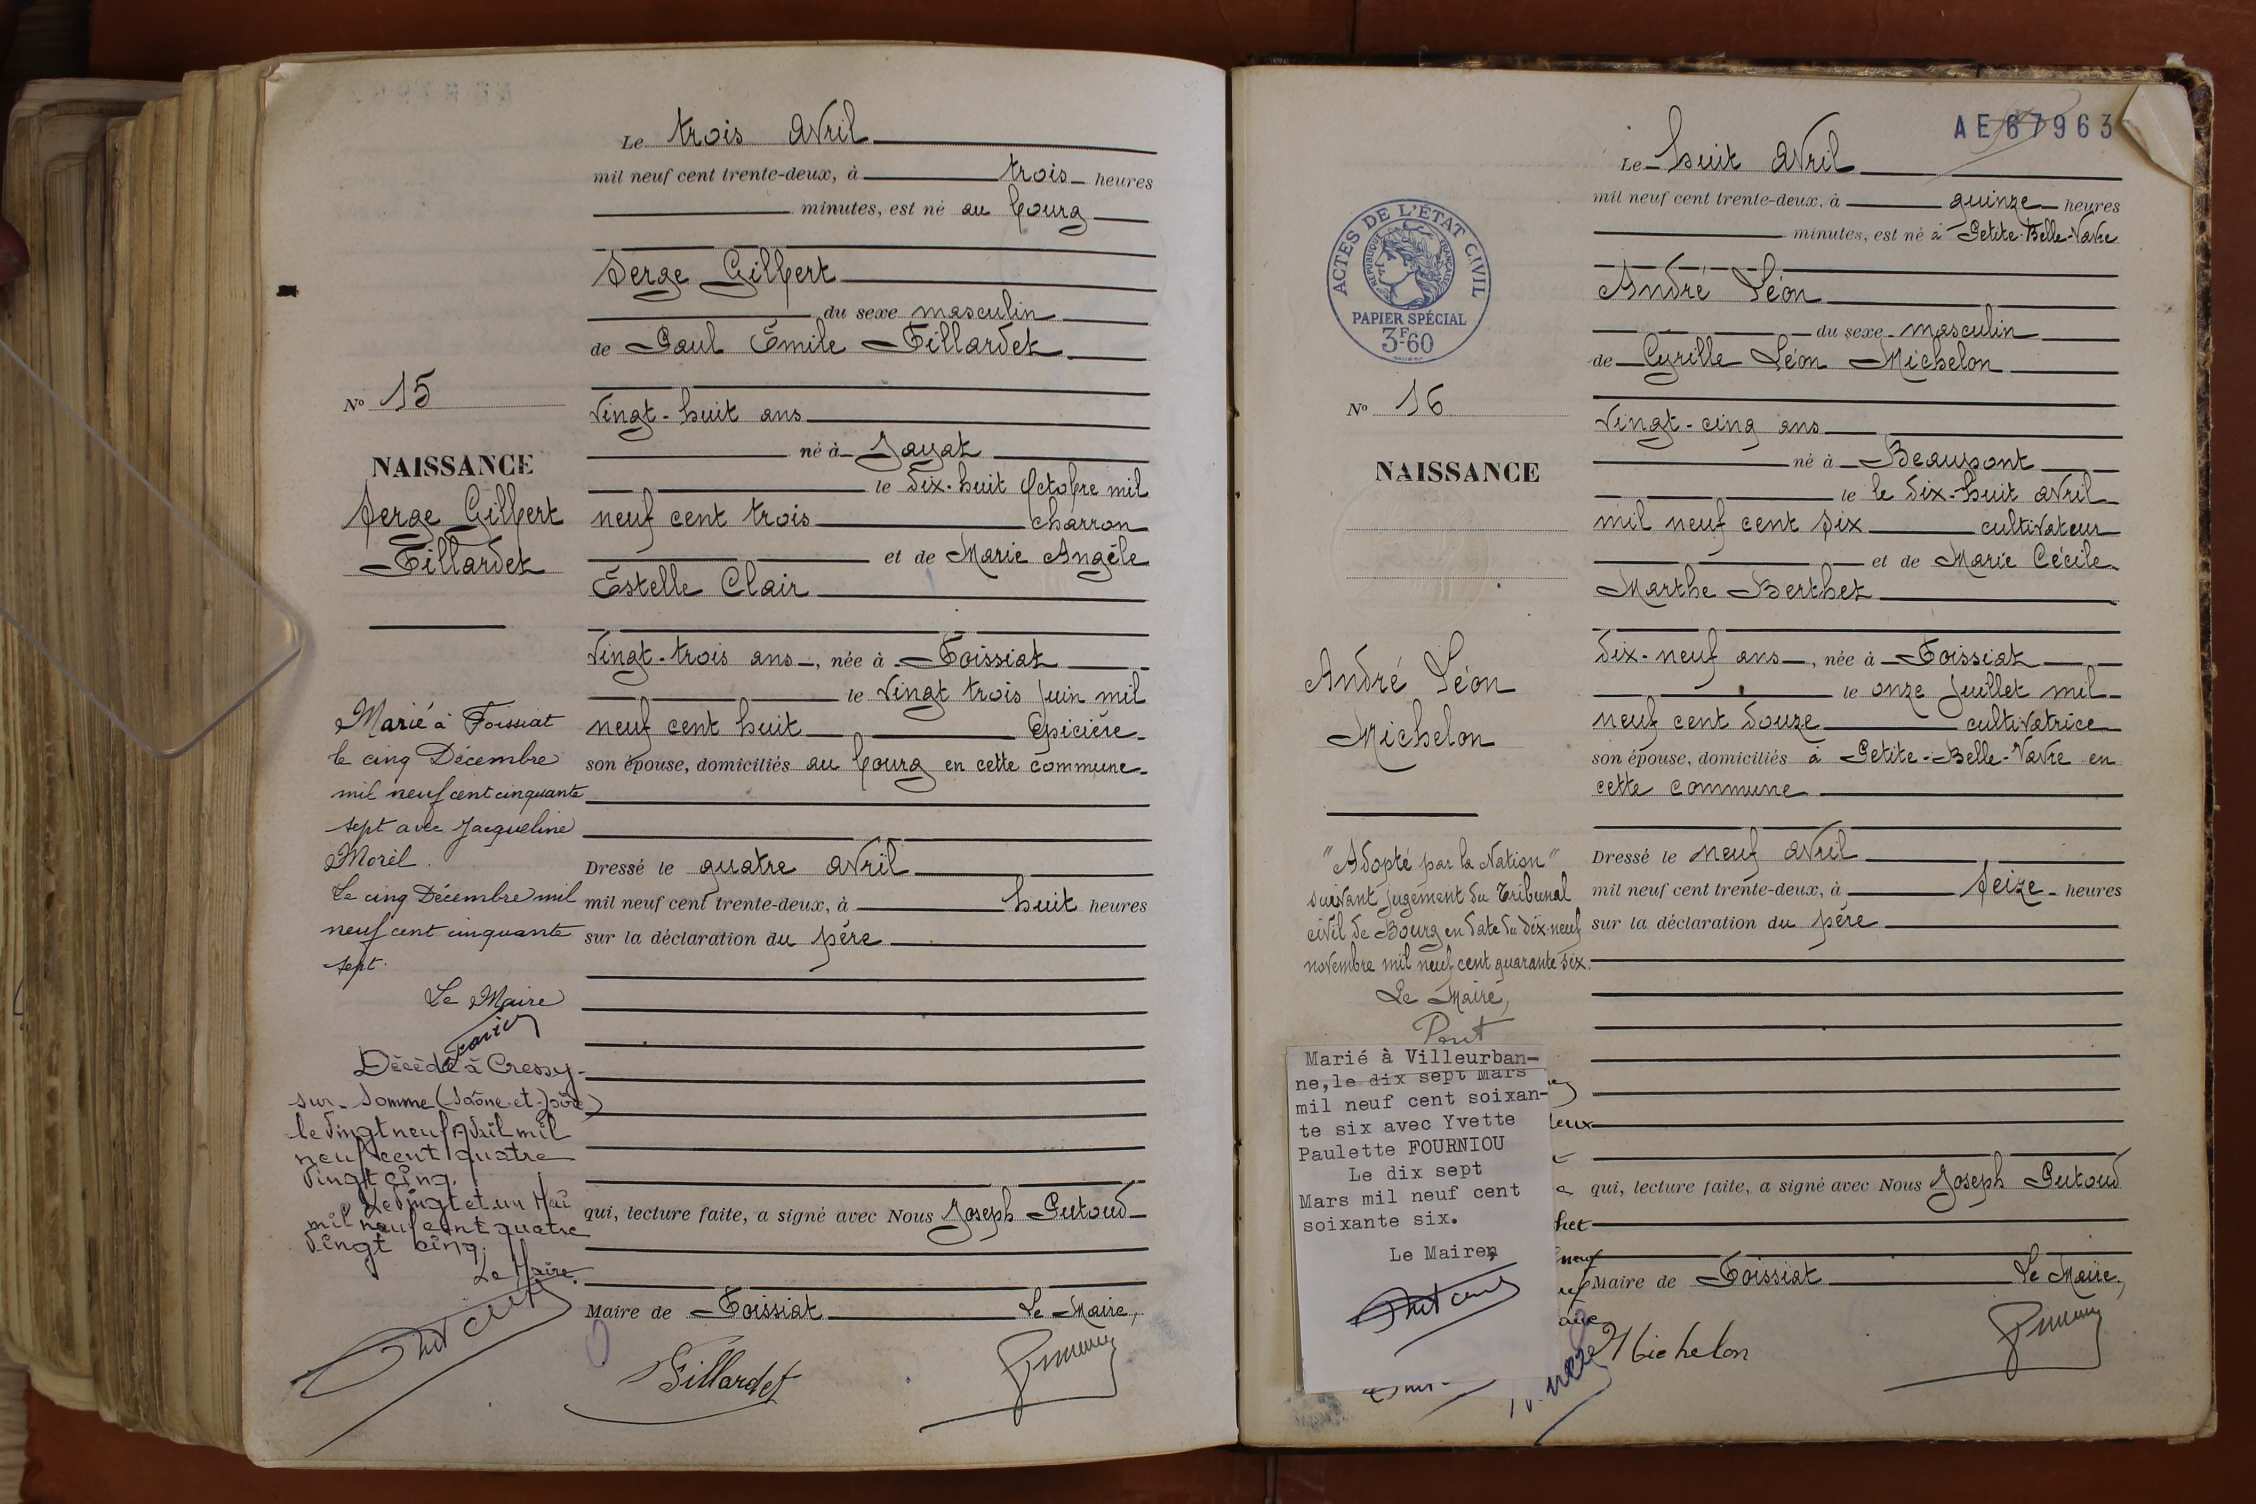 Le trois Avril
mil neuf cent trente-deux, à trois heures
minutes, est né au bourg
Serge Gilbert
du sexe masculin
de Paul Emile Tillardet
Vingt-huit ans
né à Jayat
le dix-huit Octobre mil
neuf cent trois charron
et de Marie Angèle
Estelle Clair
Vingt-trois ans, née à Foissiat
le Vingt trois Juin mil
neuf cent huit Epicière
son épouse, domiciliés au bourg en cette commune
Dressé le quatre Avril
mil neuf cent trente-deux, à huit heures
sur la déclaration du père
qui, lecture faite, a signé avec Nous Joseph Putoud
Maire de Foissiat Le Maire,
Tillardet
No 15
NAISSANCE
Serge Gilbert
Tillardet
Marié à Foissiat
le cinq Décembre
mil neuf cent cinquante
sept avec Jacqueline
Morel.
Le cinq Décembre mil
neuf cent cinquante
sept.
Le Maire
Décédé à Cressy-
sur-Somme (Saône-et-Loire)
le vingt neuf Avril mil
neuf cent quatre
vingt cinq.
Le vingt et un Mai
mil neuf cent quatre
vingt cinq.
Le Maire.
AE67963
Le huit Avril
mil neuf cent trente-deux, à quinze heures
minutes, est né à Petite-Belle-Vavre
André Léon
du sexe masculin
de Cyrille Léon Michelon
Vingt-cinq ans
né à Beaupont
le le dix-huit Avril
mil neuf cent six cultivateur
et de Marie Cécile
Marthe Berthet
dix-neuf ans, née à Foissiat
le onze Juillet mil
neuf cent douze cultivatrice
son épouse, domiciliés à Petite-Belle-Vavre en
cette commune
Dressé le neuf Avril
mil neuf cent trente-deux, à seize heures
sur la déclaration du père
qui, lecture faite, a signé avec Nous Joseph Putoud
Maire de Foissiat Le Maire,
Michelon
ACTES DE L'ÉTAT CIVIL
RÉPUBLIQUE FRANÇAISE
PAPIER SPÉCIAL
3F60
No 16
NAISSANCE
André Léon
Michelon
"Adopté par la Nation"
suivant jugement du Tribunal
civil de Bourg en date du dix-neuf
novembre mil neuf cent quarante six.
Le Maire,
Marié à Villeurban-
ne, le dix sept Mars
mil neuf cent soixan-
te six avec Yvette
Paulette FOURNIOU
Le dix sept
Mars mil neuf cent
soixante six.
Le Maire,